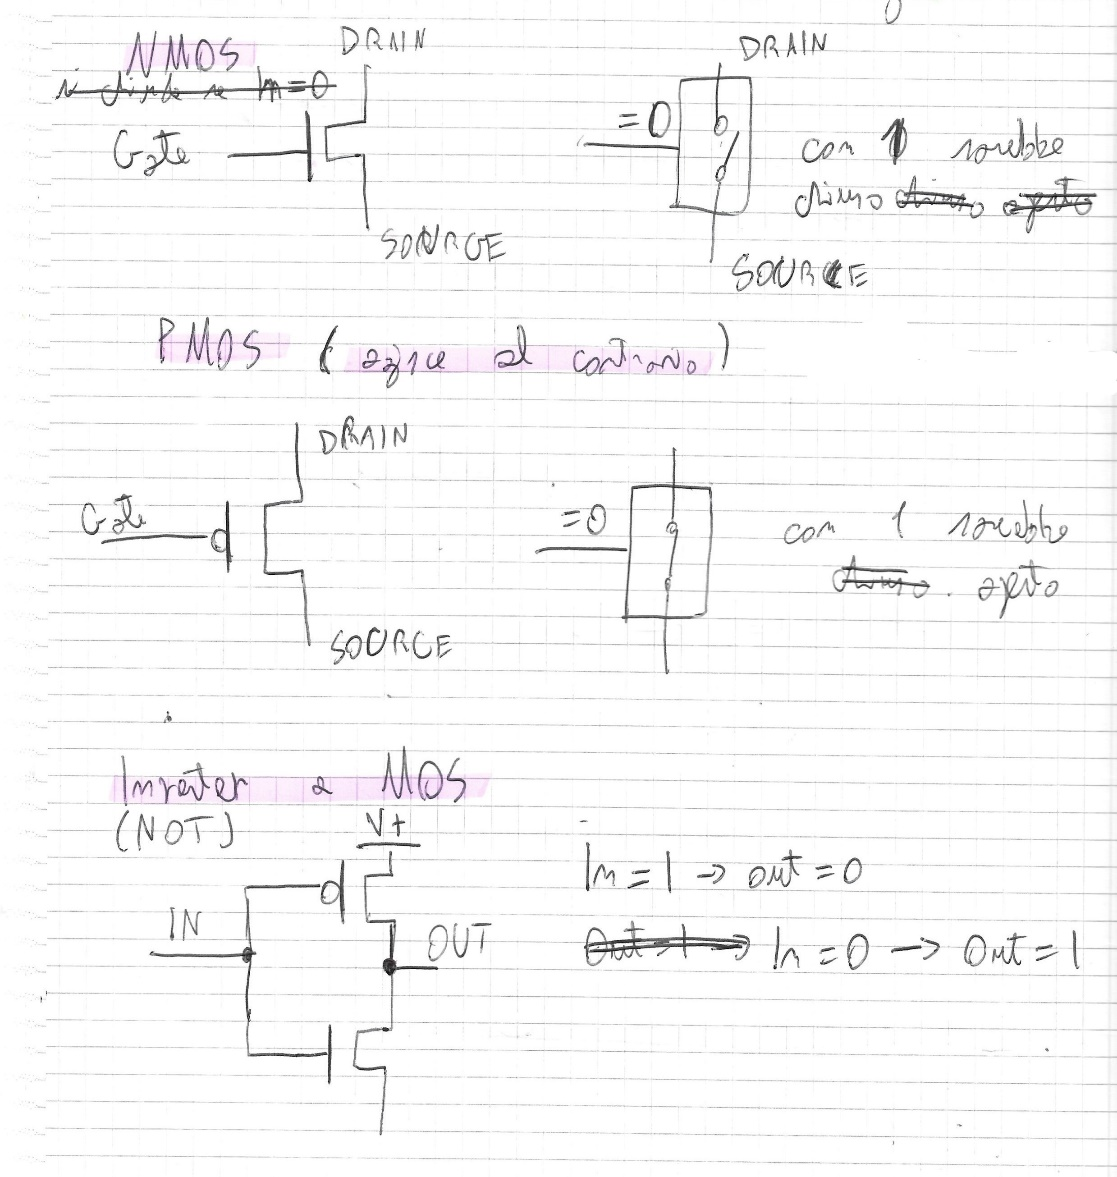 NMOS
si chiude se In=0
DRAIN
Gate
SOURCE
DRAIN
=0
con 1 sarebbe
chiuso chiuso aperto
SOURCE
PMOS (agisce al contrario)
DRAIN
Gate
SOURCE
=0
con 1 sarebbe
chiuso. aperto
Inverter a MOS
(NOT)
V+
IN
OUT
In=1 → out=0
Out=1 → In=0 → Out=1